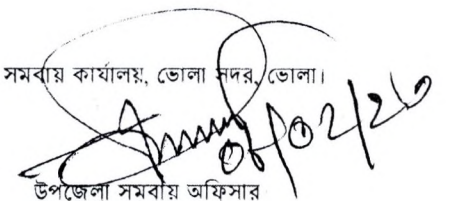 সমবায় কার্যালয়, ভোলা সদর, ভোলা।
উপজেলা সমবায় অফিসার